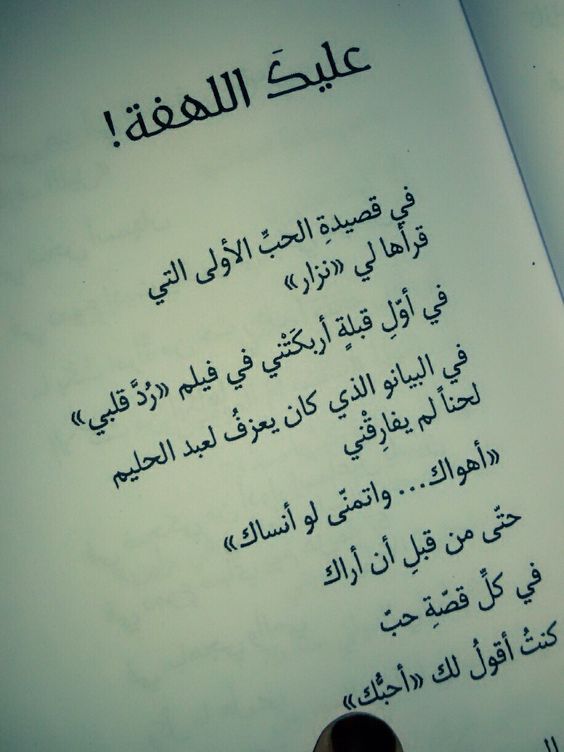 عليكَ اللهفة!
في قصيدةِ الحبِّ الأولى التي
قرأها لي «نزار»
في أوّلِ قبلةٍ أربكَتْني في فيلم «رُدَّ قلبي»
في البيانو الذي كان يعزفُ لعبد الحليم
لحناً لم يفارِقْني
«أهواك... واتمنّى لو أنساك»
حتّى من قبلِ أن أراك
في كلِّ قصّةِ حبّ
كنتُ أقولُ لك «أحبُّك»